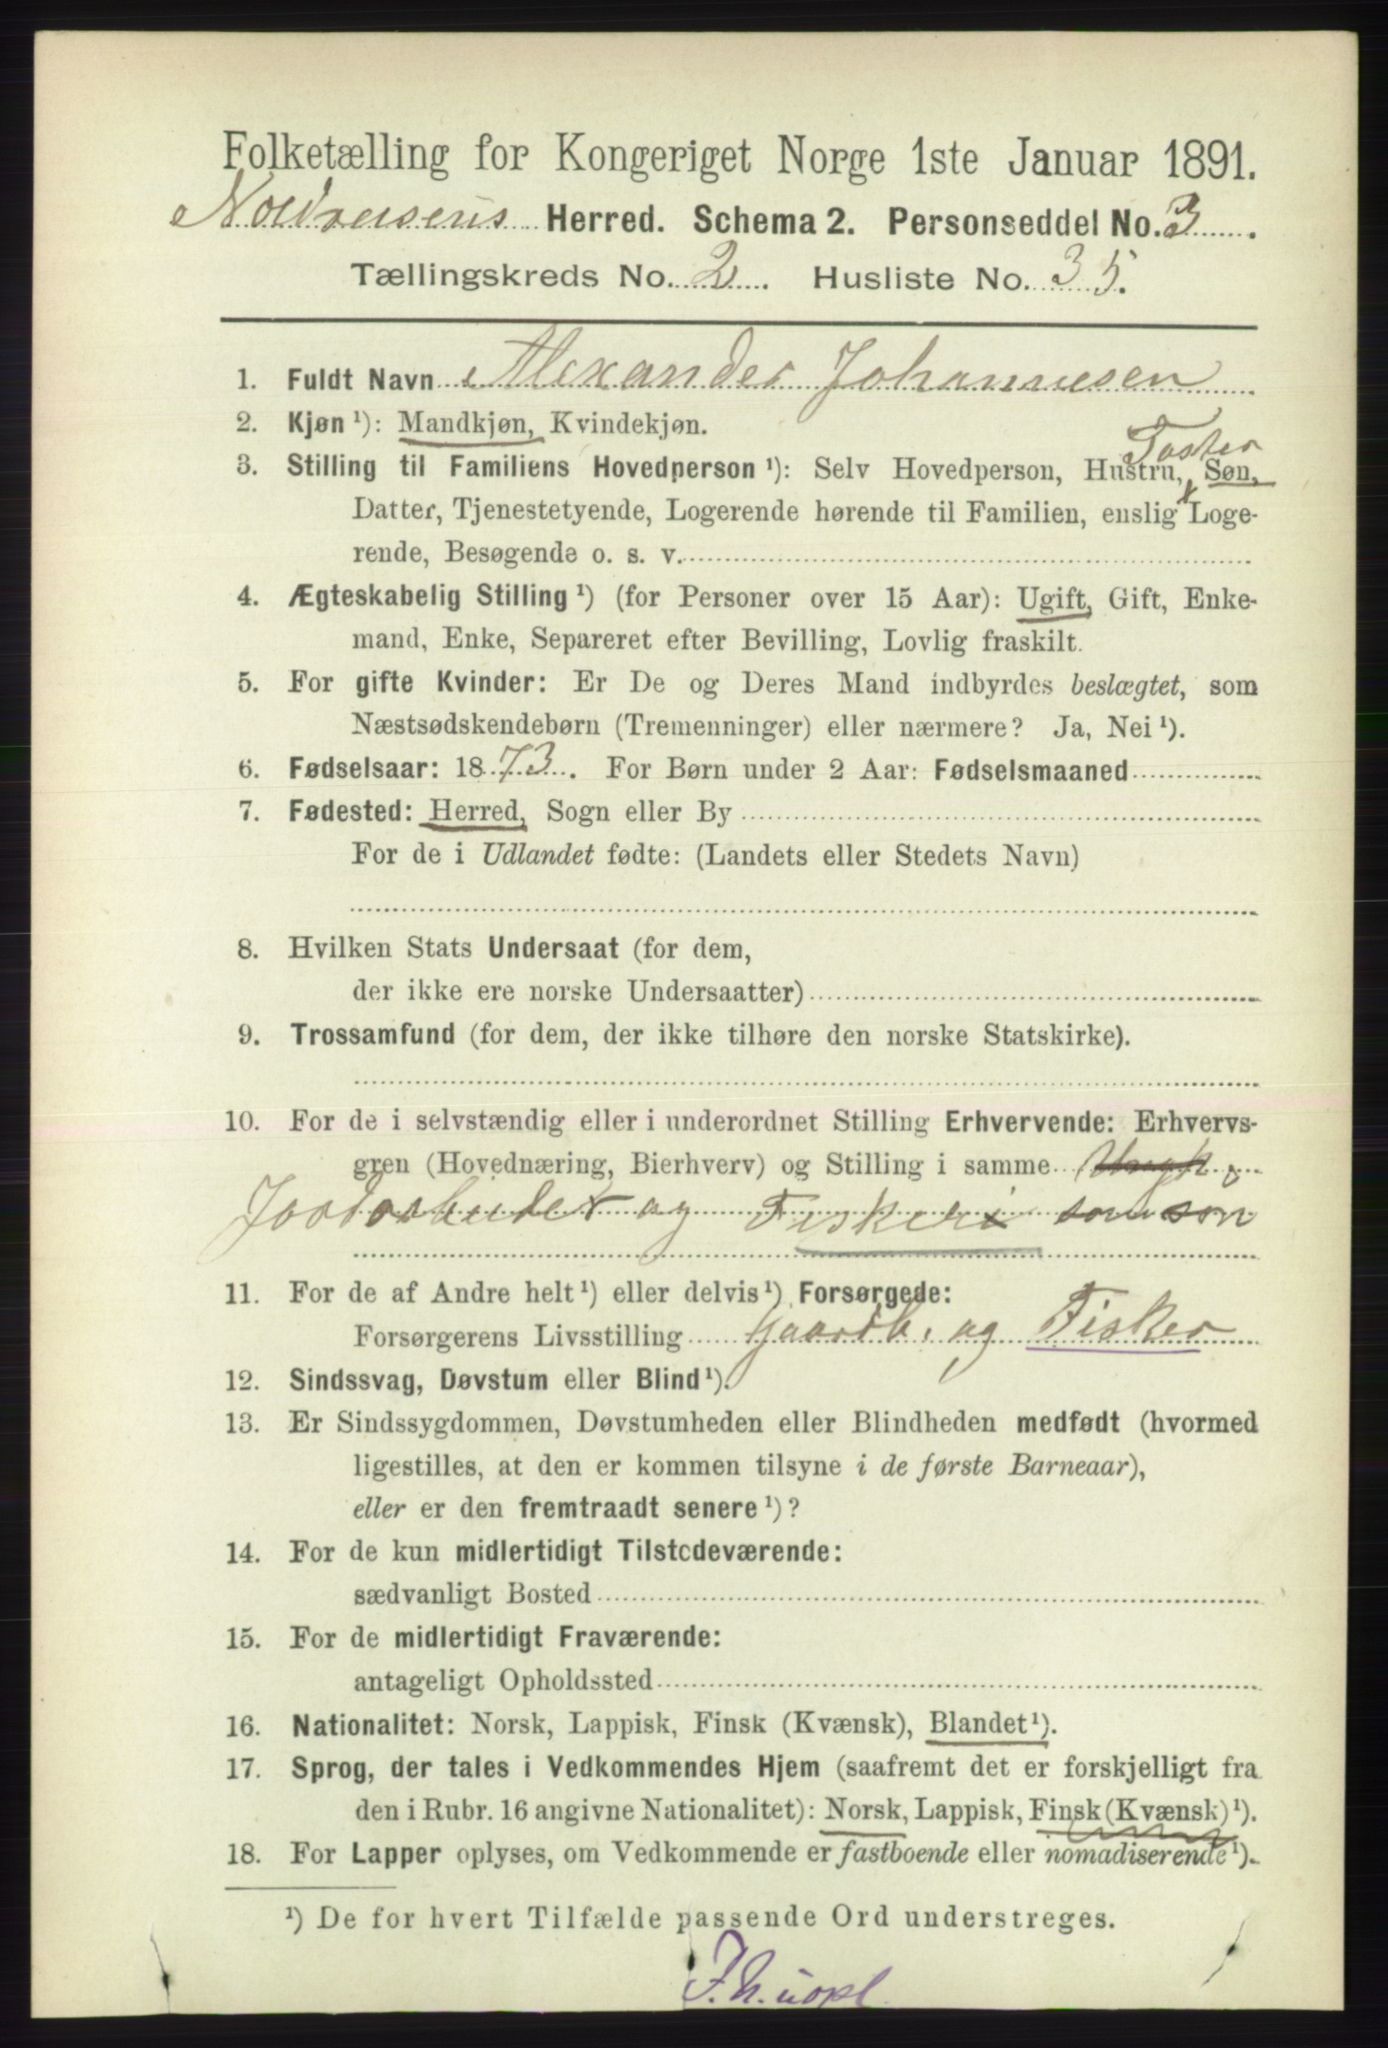 Folketælling for Kongeriget Norge 1ste Januar 1891.
Nordreisens Herred. Schema 2. Personseddel No. 3
Tællingskreds No. 2. Husliste No. 35.
1. Fuldt Navn Alexander Johannesen
2. Kjøn ¹): Mandkjøn, Kvindekjøn.
Foster
3. Stilling til Familiens Hovedperson ¹): Selv Hovedperson, Hustru, Søn,
Datter, Tjenestetyende, Logerende hørende til Familien, enslig Loge-
rende, Besøgende o. s. v.
4. Ægteskabelig Stilling ¹) (for Personer over 15 Aar): Ugift, Gift, Enke-
mand, Enke, Separeret efter Bevilling, Lovlig fraskilt.
5. For gifte Kvinder: Er De og Deres Mand indbyrdes beslægtet, som
Næstsødskendebørn (Tremenninger) eller nærmere? Ja, Nei ¹).
6. Fødselsaar: 1873. For Børn under 2 Aar: Fødselsmaaned
7. Fødested: Herred, Sogn eller By
For de i Udlandet fødte: (Landets eller Stedets Navn)
8. Hvilken Stats Undersaat (for dem,
der ikke ere norske Undersaatter)
9. Trossamfund (for dem, der ikke tilhøre den norske Statskirke).
10. For de i selvstændig eller i underordnet Stilling Erhvervende: Erhvervs-
gren (Hovednæring, Bierhverv) og Stilling i samme
Jordarbeider og Fiskeri som søn
11. For de af Andre helt ¹) eller delvis ¹) Forsørgede:
Forsørgerens Livsstilling Gaardb. og Fisker
12. Sindssvag, Døvstum eller Blind ¹).
13. Er Sindssygdommen, Døvstumheden eller Blindheden medfødt (hvormed
ligestilles, at den er kommen tilsyne i de første Barneaar),
eller er den fremtraadt senere ¹)?
14. For de kun midlertidigt Tilstedeværende:
sædvanligt Bosted
15. For de midlertidigt Fraværende:
antageligt Opholdssted
16. Nationalitet: Norsk, Lappisk, Finsk (Kvænsk), Blandet ¹).
17. Sprog, der tales i Vedkommendes Hjem (saafremt det er forskjelligt fra
den i Rubr. 16 angivne Nationalitet): Norsk, Lappisk, Finsk (Kvænsk) ¹).
18. For Lapper oplyses, om Vedkommende er fastboende eller nomadiserende ¹).
¹) De for hvert Tilfælde passende Ord understreges.